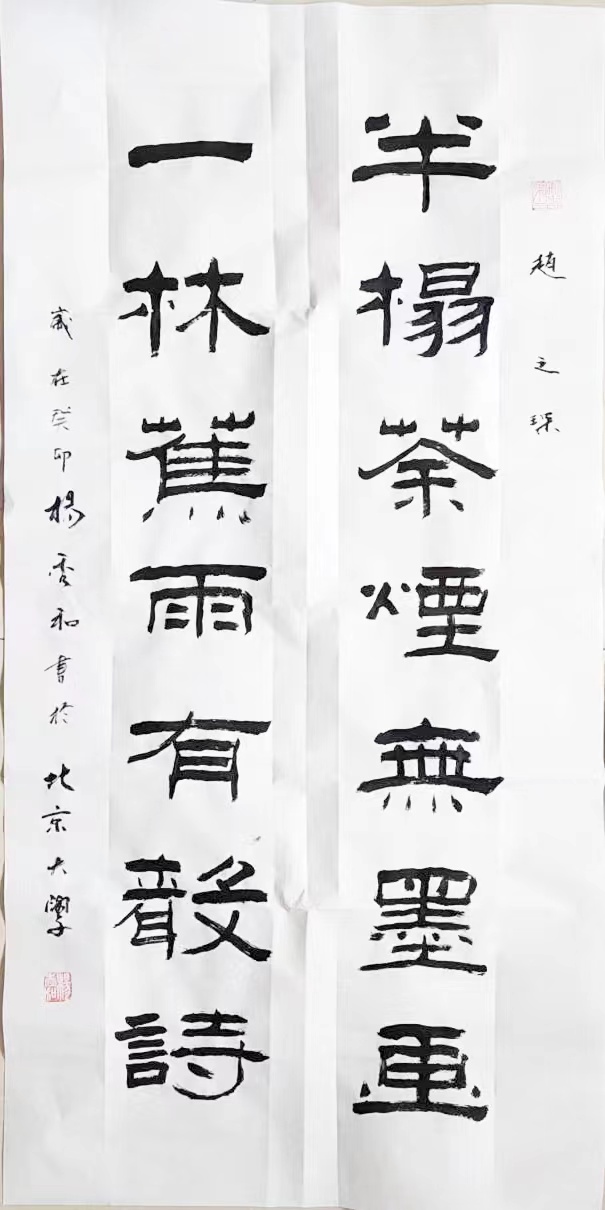 趙之琛
半榻荼煙無墨畫
一林蕉雨有聲詩
歲在癸卯楊雲和書於北京大學